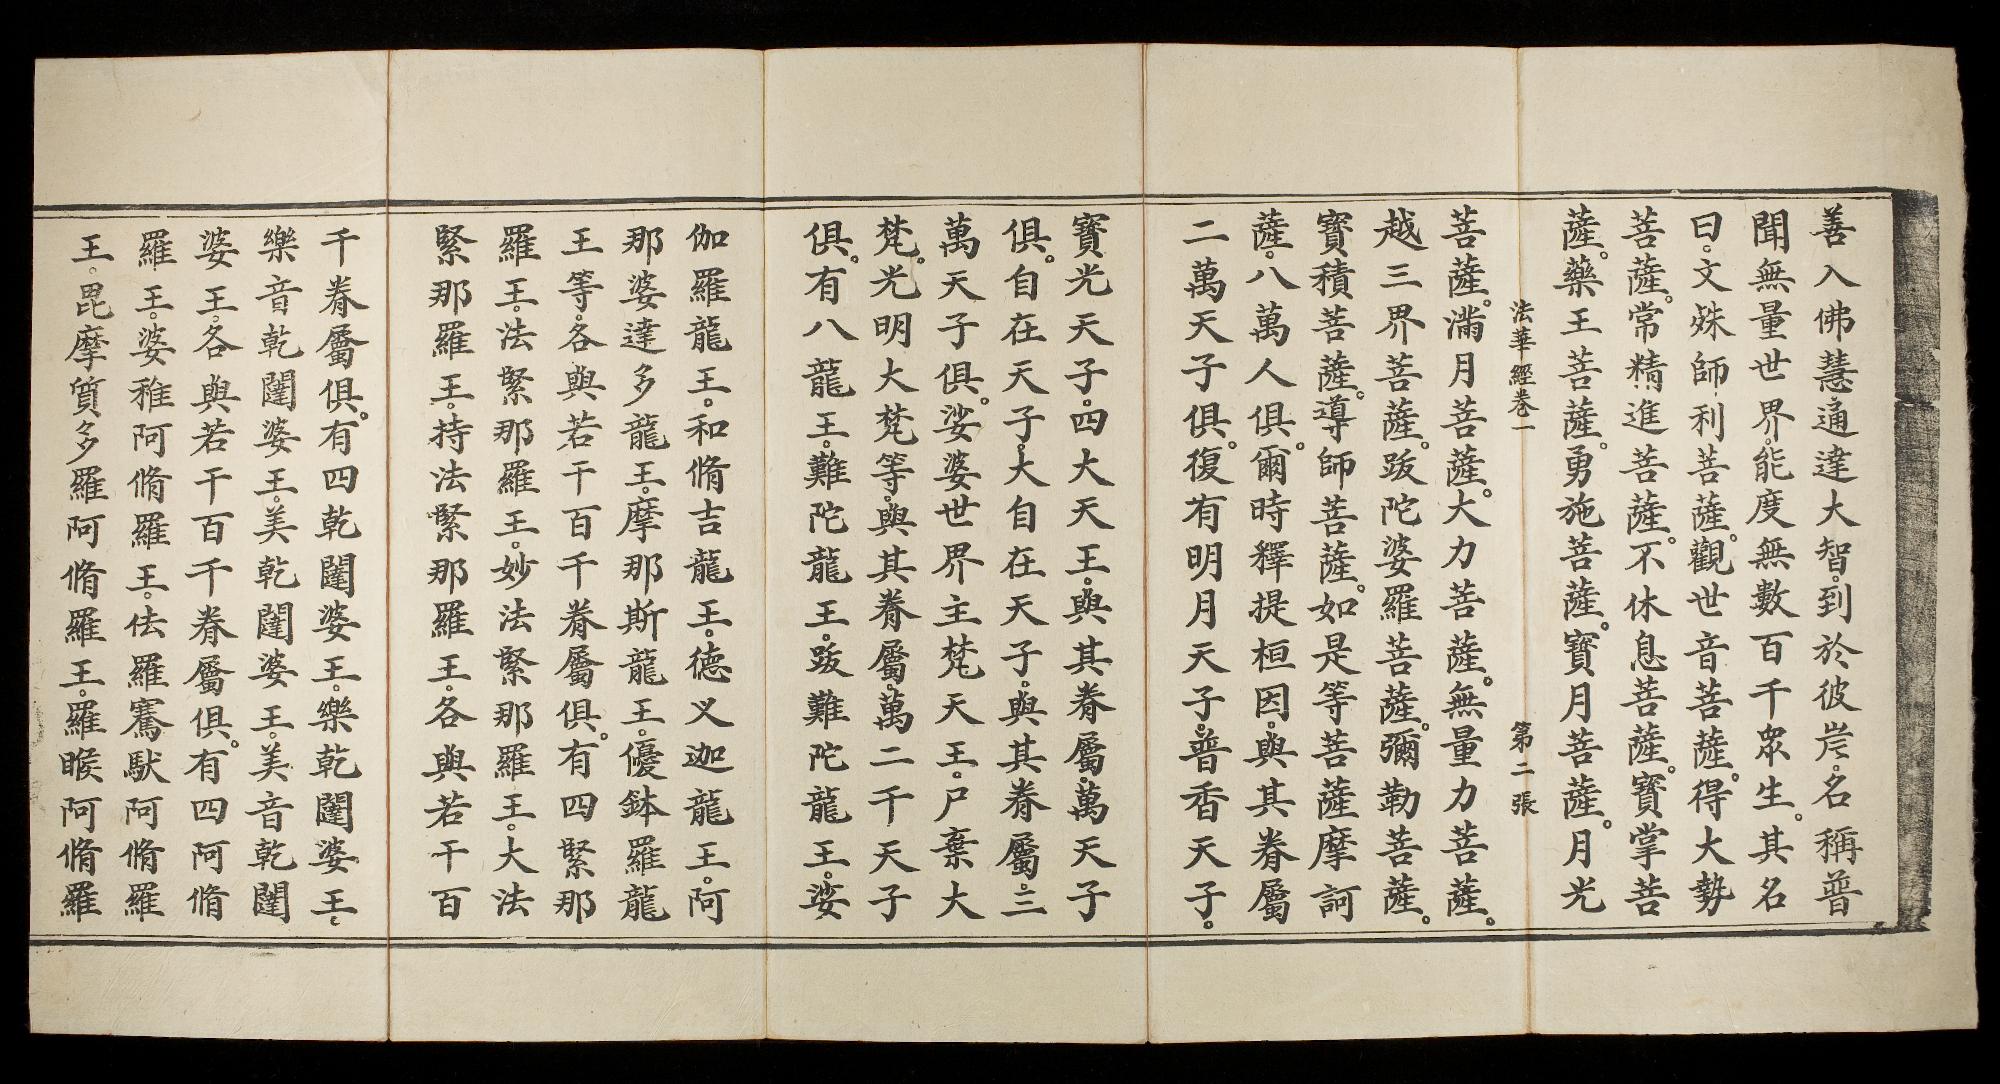 善入佛慧。通達大智。到於彼岸。名稱普
聞無量世界。能度無數百千眾生。其名
曰。文殊師利菩薩。觀世音菩薩。得大勢
菩薩。常精進菩薩。不休息菩薩。寶掌菩
薩。藥王菩薩。勇施菩薩。寶月菩薩。月光
法華經卷一 第二張
菩薩。滿月菩薩。大力菩薩。無量力菩薩。
越三界菩薩。跋陀婆羅菩薩。彌勒菩薩。
寶積菩薩。導師菩薩。如是等菩薩摩訶
薩。八萬人俱。爾時釋提桓因。與其眷屬
二萬天子俱。復有明月天子。普香天子。
寶光天子。四大天王。與其眷屬。萬天子
俱。自在天子。大自在天子。與其眷屬。三
萬天子俱。娑婆世界主梵天王。尸棄大
梵。光明大梵等。與其眷屬。萬二千天子
俱。有八龍王。難陀龍王。跋難陀龍王。娑
伽羅龍王。和脩吉龍王。德叉迦龍王。阿
那婆達多龍王。摩那斯龍王。優鉢羅龍
王等。各與若干百千眷屬俱。有四緊那
羅王。法緊那羅王。妙法緊那羅王。大法
緊那羅王。持法緊那羅王。各與若干百
千眷屬俱。有四乾闥婆王。樂乾闥婆王。
樂音乾闥婆王。美乾闥婆王。美音乾闥
婆王。各與若干百千眷屬俱。有四阿脩
羅王。婆稚阿脩羅王。佉羅騫馱阿脩羅
王。毘摩質多羅阿脩羅王。羅睺阿脩羅